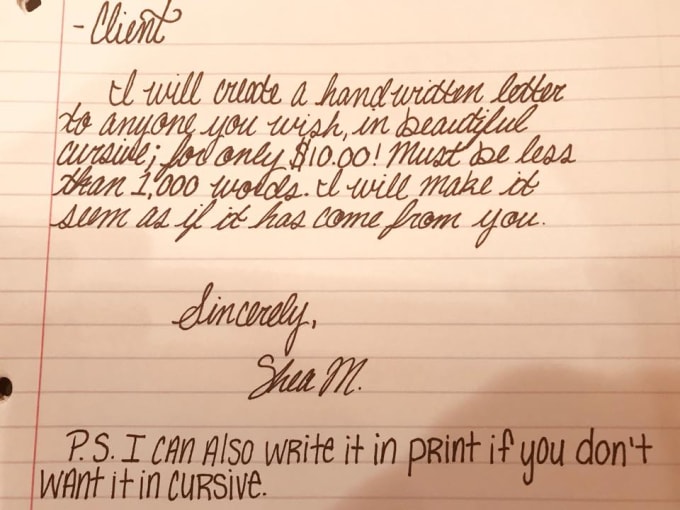 - Client
I will create a handwritten letter
to anyone you wish, in beautiful
cursive; for only $10.00! Must be less
than 1,000 words. I will make it
seem as if it has come from you.
Sincerely,
Shea M.
P.S. I CAN AlSO WRite it in PRint if you don't
WAnt it in CURSIVE.